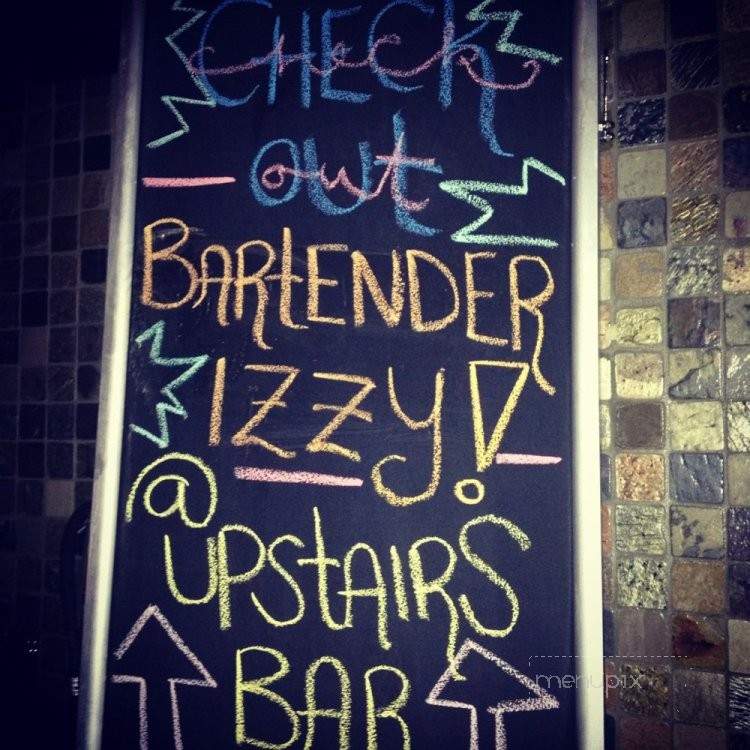 CHECK
out
BARtENDER
IZZy!
@
UPStAIRS
BAR
menupix